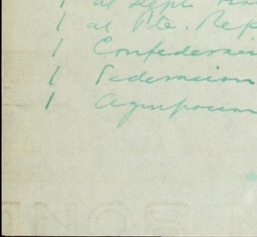 1 al Dept.
1 al Pte. Rep
1 Confederaci
1 Federacion
1 Agrupacion